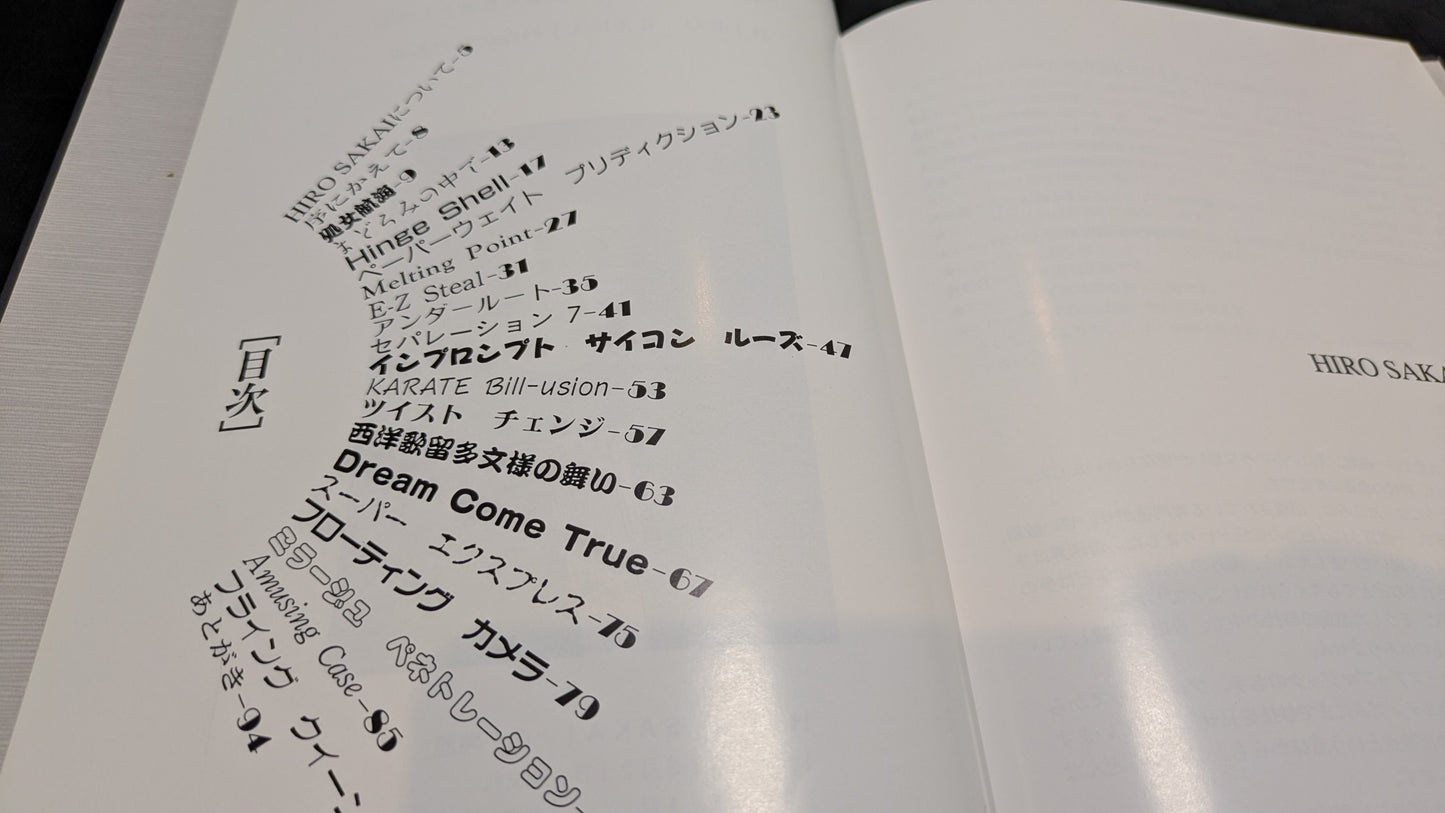 [目次]
HIRO SAKAIについて-5
序にかえて-8
処女航海-9
まどろみの中で-13
Hinge Shell-17
ペーパーウェイト プリディクション-23
Melting Point-27
E-Z Steal-31
アンダールート-35
セパレーション 7-41
インプロンプト サイコン ルーズ-47
KARATE Bill-usion-53
ツイスト チェンジ-57
西洋歌留多文様の舞い-63
Dream Come True-67
スーパー エクスプレス-75
フローティング カメラ-79
ミラージュ ペネトレーション-
Amusing Case-85
フライング クイーン
あとがき-94
HIRO SAKA